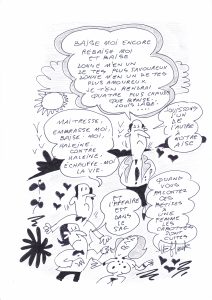 BAISE MOI ENCORE
REBAISE MOI
ET BAISE
DONNE M'EN UN
DE TES PLUS SAVOUREUX
DONNE M'EN UN DE TES
PLUS AMOUREUX
JE T'EN RENDRAI
QUATRE PLUS CHAUDS
QUE BRAISE
LOUISE LABÉ.
MAITRESSE,
EMBRASSE MOI,
BAISE MOI,
HALEINE
CONTRE
HALEINE,
ÉCHAUFFE-MOI
LA VIE.
JOUISSONS
UN DE
L'AUTRE
A
NOTRE
AISE
L'AFFAIRE
EST
DANS
LE
SAC
QUAND
VOUS
RACONTEZ
CES
BETISES
A
UNE
FEMME